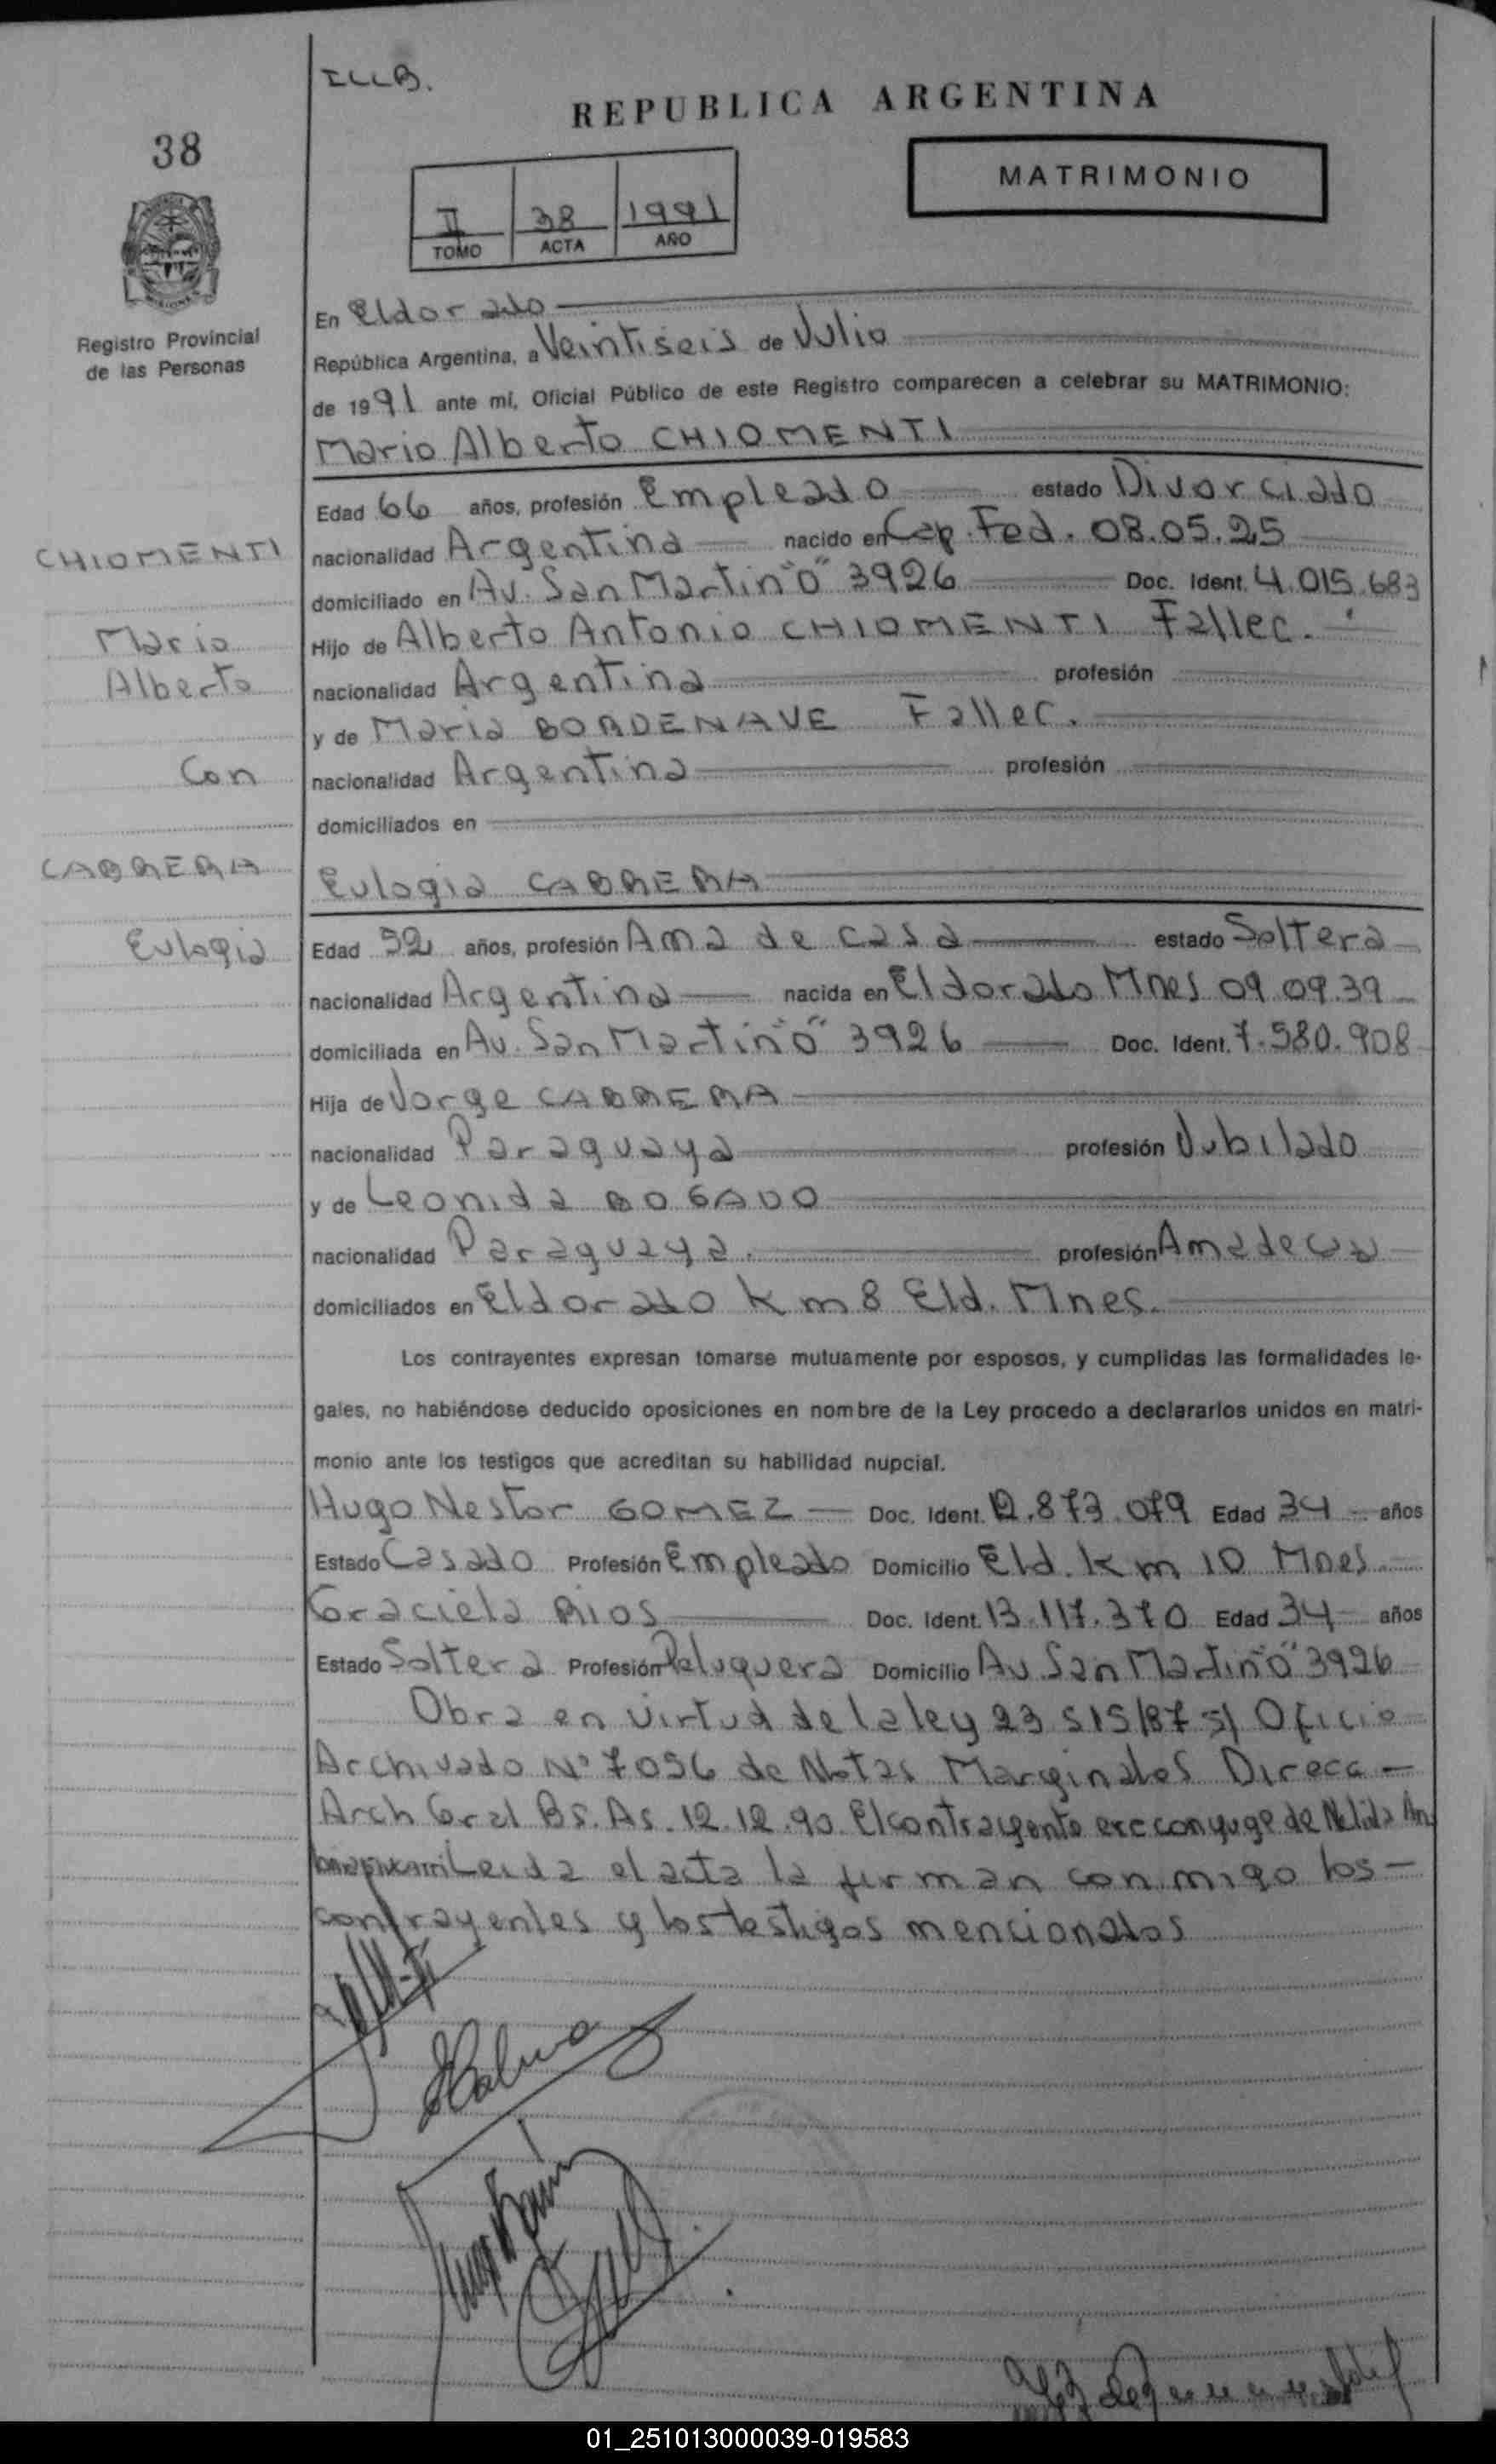 ILLB.
REPUBLICA ARGENTINA
38
MATRIMONIO
II 38 1991
TOMO ACTA AÑO
Registro Provincial
de las Personas
En Eldorado
República Argentina, a Veintiseis de Julio
de 1991 ante mí, Oficial Público de este Registro comparecen a celebrar su MATRIMONIO:
Mario Alberto CHIOMENTI
Edad 66 años, profesión Empleado estado Divorciado
CHIOMENTI
nacionalidad Argentina nacido en Cap. Fed. 08.05.25
domiciliado en Av. San Martin "O" 3926 Doc. Ident. 4.015.683
Mario
Hijo de Alberto Antonio CHIOMENTI Fallec.
Alberto
nacionalidad Argentina profesión
y de Maria BORDENAVE Fallec.
Con
nacionalidad Argentina profesión
domiciliados en
CABRERA
Eulogia CABRERA
Eulogia
Edad 52 años, profesión Ama de casa estado Soltera
nacionalidad Argentina nacida en Eldorado Mnes 09.09.39
domiciliada en Av. San Martin "O" 3926 Doc. Ident. 7.580.908
Hija de Jorge CABRERA
nacionalidad Paraguaya profesión Jubilado
y de Leonida BOGADO
nacionalidad Paraguaya. profesión Ama de
domiciliados en Eldorado Km 8 Eld. Mnes.
Los contrayentes expresan tomarse mutuamente por esposos, y cumplidas las formalidades le-
gales, no habiéndose deducido oposiciones en nombre de la Ley procedo a declararlos unidos en matri-
monio ante los testigos que acreditan su habilidad nupcial.
Hugo Nestor GOMEZ Doc. Ident. 12.873.079 Edad 34 años
Estado Casado Profesión Empleado Domicilio Eld. Km 10 Mnes.
Graciela RIOS Doc. Ident. 13.117.370 Edad 34 años
Estado Soltera Profesión Peluquera Domicilio Av San Martin "O" 3926
Obra en virtud de la ley 23 515/87 s/ Oficio
Archivado N° 7056 de Notas Marginales Direcc-
Arch Gral Bs. As. 12.12.90. El contrayente exconyuge de Nelida
Leida el acta la firman conmigo los-
contrayentes y los testigos mencionados
01_251013000039-019583